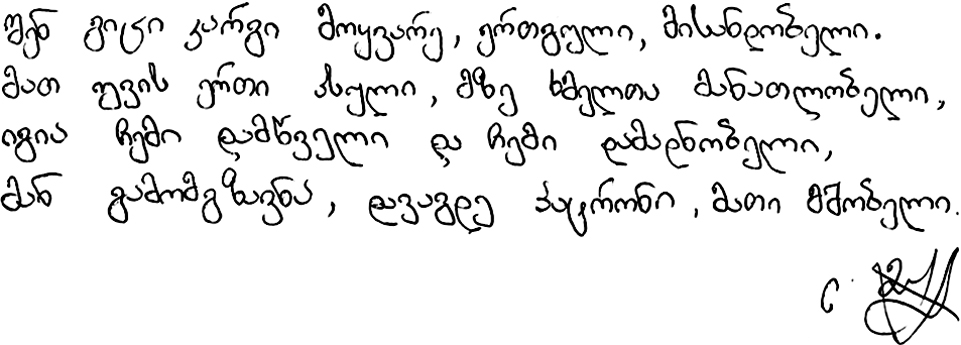 შენ გიცი კარგი მოყვარე, ერთგული, მისანდობელი.
მათ უვის ერთი ასული, მზე ხმელთა მანათლობელი,
იგია ჩემი დამწველი და ჩემი დამადნობელი,
მან გამომგზავნა, დავაგდე პატრონი, მათი მშობელი.